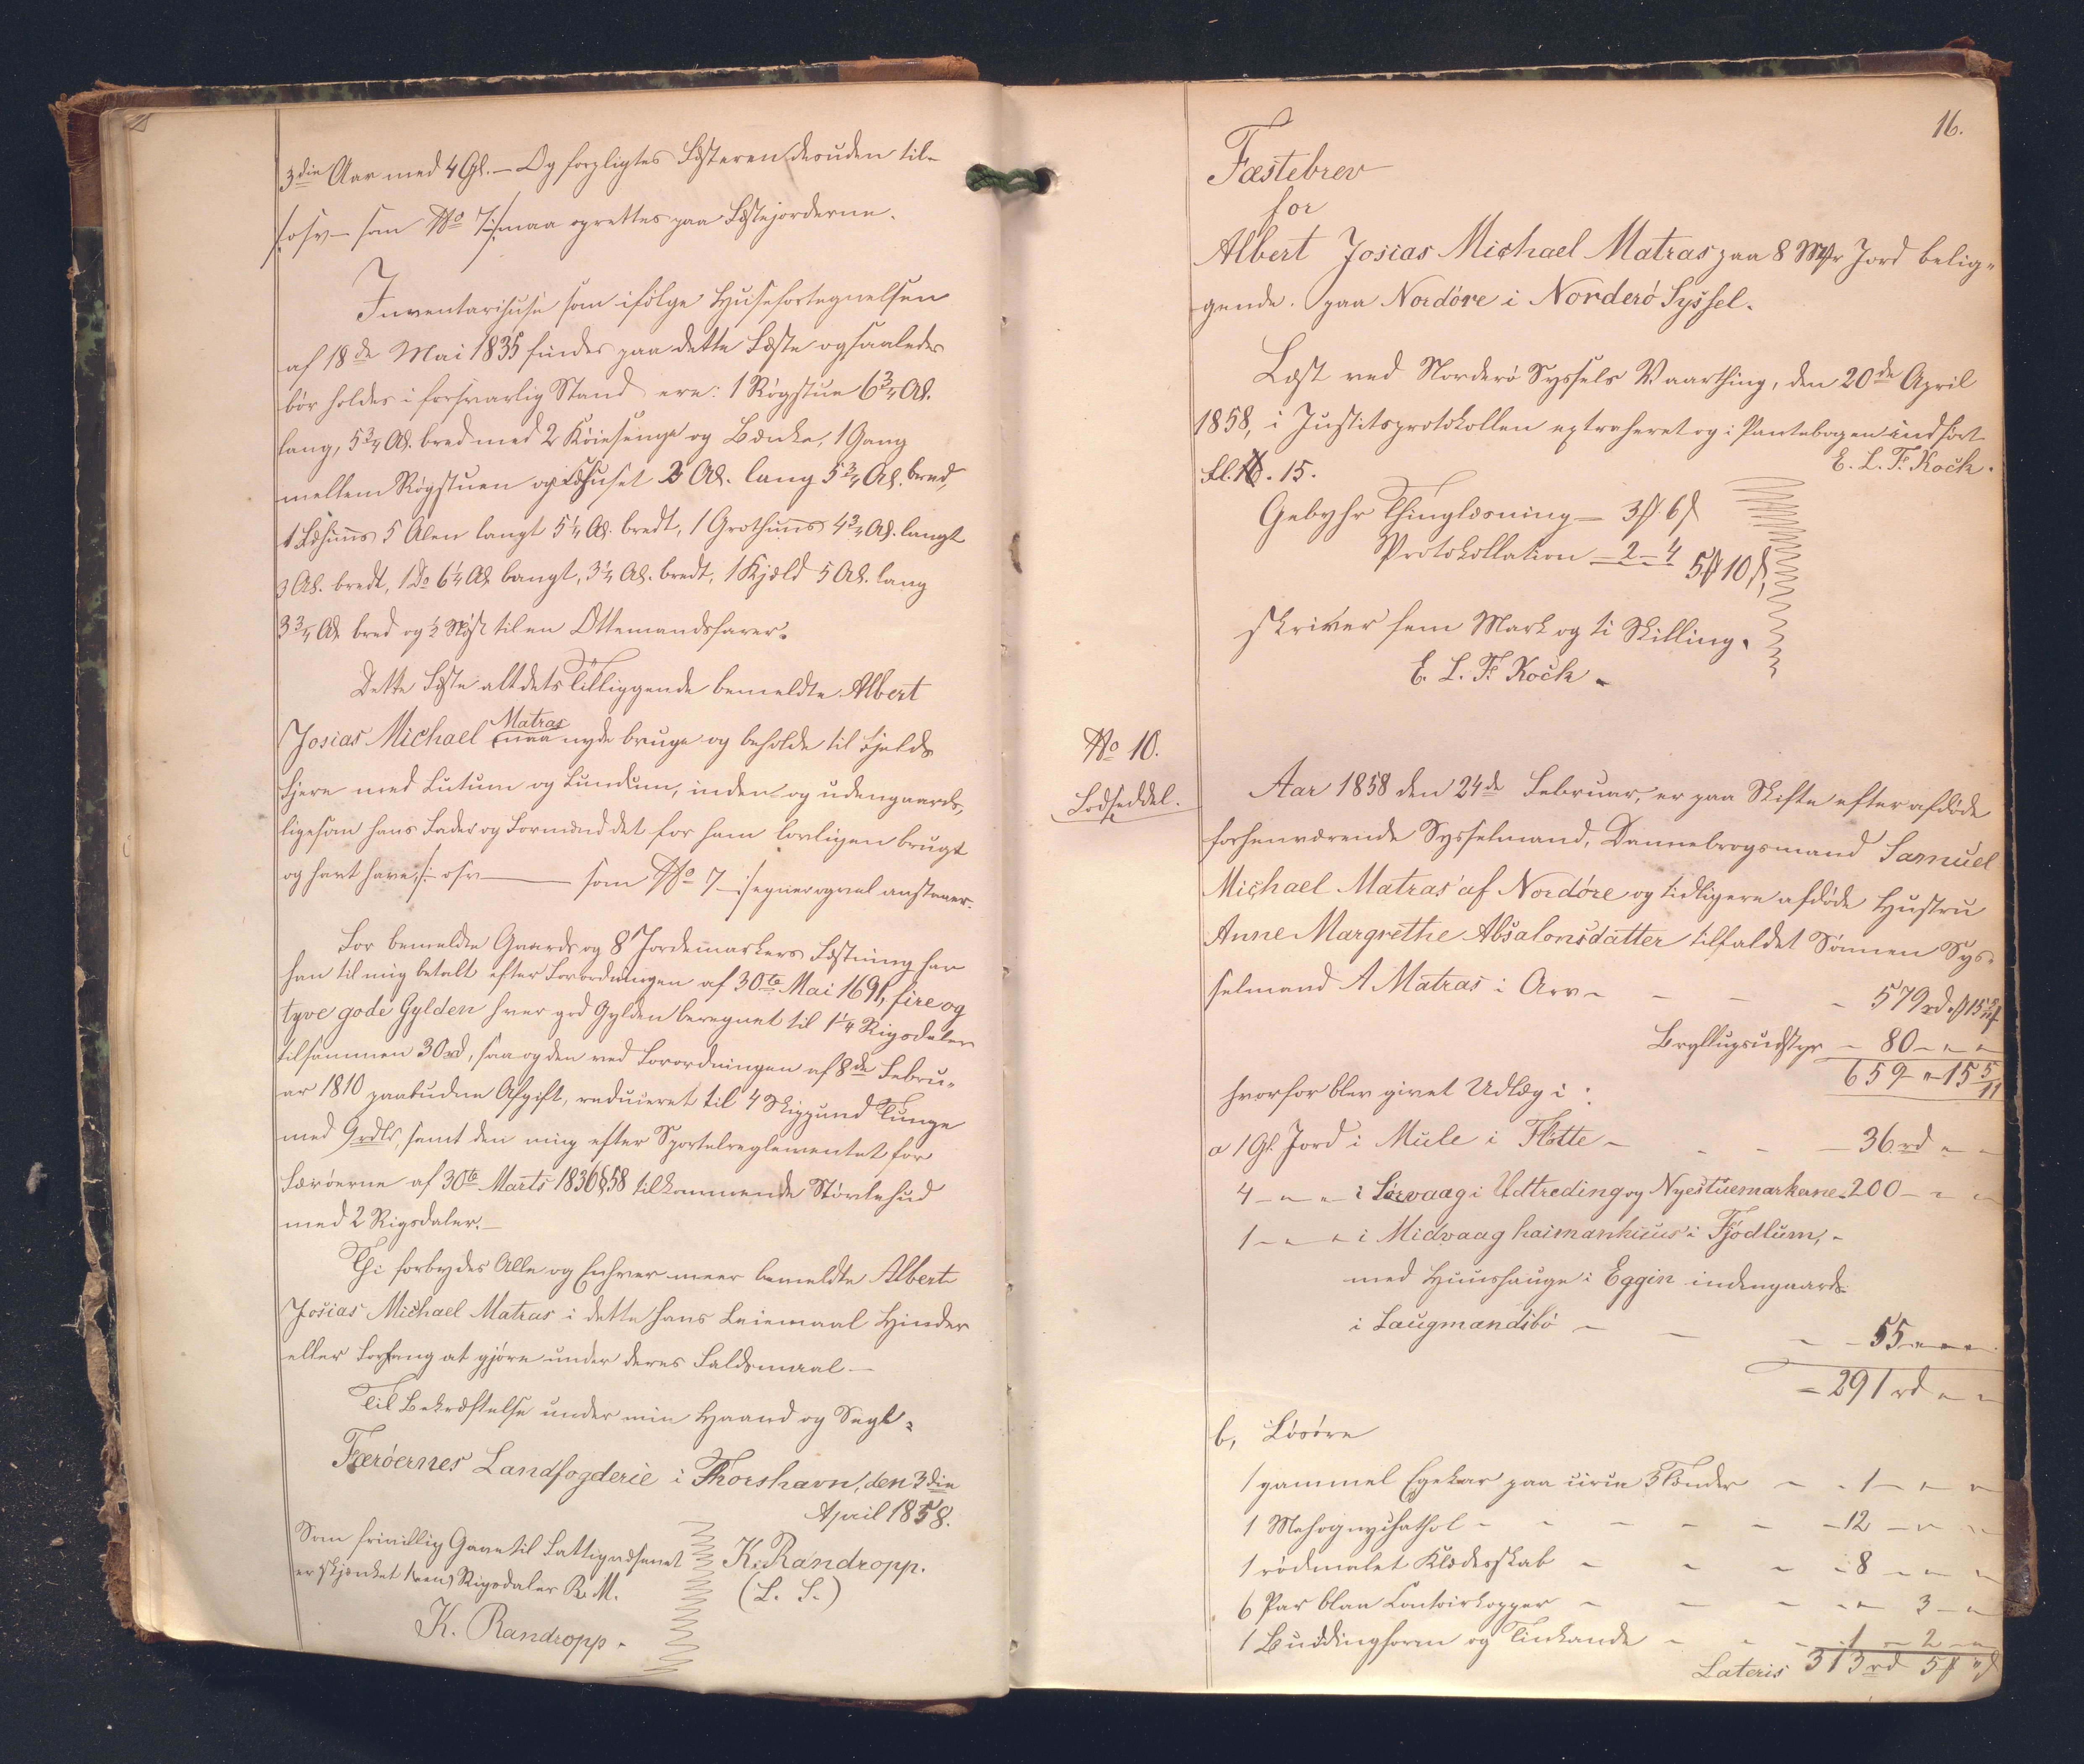 3die Aar med 4 Gl. — Og forpligtes Fæsteren desuden til-
/: osv — som No 7 :/ maa oprettes paa Fæstejorderne.
Inventariihuse som ifølge Husefortegnelsen
af 18de Mai 1835 findes paa dette Fæste og saaledes
bör holdes i forsvarlig Stand ere: 1 Rögstue 6 3/4 Al.
lang, 5 3/4 Al. bred med 2 Köiesenge og Bænke, 1 Gang
mellem Rögstuen og Fæhuset 3 Al. lang 5 3/4 Al. bred,
1 Fæhuus 5 Alen langt 5 1/4 Al. bredt, 1 Grothuus 4 3/4 Al. langt
3 Al. bredt, 1 Do 6 1/4 Al. langt, 3 1/4 Al. bredt, 1 Kjæld 5 Al. lang
3 3/4 Al. bred og 1/2 Nöst til en Ottemandsfarer.
Dette Fæste alt dets Tilliggende bemeldte Albert
Josias Michael Matras maa nyde bruge og beholde til Fjelds
Fjere med Lutum og Lundum, inden- og udengaards,
ligesom hans Fader og Formænd det for ham lovligen brugt
og havt have /: osv — som No 7 — :/ egner og vel anstaaer.
For bemeldte Gaards og 8 Jordemarkers Fæstning har
han til mig betalt efter Forordningen af 30te Mai 1691, fire og
tyve gode Gylden hver god Gylden beregnet til 1 1/4 Rigsdaler
tilsammen 30 rd, saa og den ved Forordningen af 8de Febru-
ar 1810 paabudne Afgift, reduceret til 4 Skippund Tunge
med 9 rdlr, samt den mig efter Sportelreglementet for
Færöerne af 30te Marts 1836 § 58 tilkommende Störlehud
med 2 Rigsdaler. —
Thi forbydes Alle og Enhver meer bemeldte Albert
Josias Michael Matras i dette hans Leiemaal Hinder
eller Forfang at gjöre under deres Faldsmaal —
Til Bekræftelse under min Haand og Segl.
Færöernes Landfogderie i Thorshavn, den 3die
April 1858.
K. Randropp.
(L. S.)
Som frivillig Gave til Fattigvæsenet
er skjænket 1 (een) Rigsdaler R. M.
K. Randropp.
16.
Fæstebrev
for
Albert Josias Michael Matras paa 8 Mkr Jord belig-
gende paa Nordöre i Norderö Syssel.
Læst ved Norderö Syssels Vaarthing, den 20de April
1858, i Justitsprotokollen extraheret og i Pantebogen indfört
Fol. 15.
E. L. F. Koch.
Gebyhr Thinglæsning — 3 ß 6 ß
Protokollation — 2 — 4
5 ß 10 ß,
skriver fem Mark og ti Skilling.
E. L. F. Koch.
No 10.
Lodseddel.
Aar 1858 den 24de Februar, er paa Skifte efter afdöde
forhenværende Sysselmand, Dannebrogsmand Samuel
Michael Matras af Nordöre og tidligere afdöde Hustru
Anne Margrethe Absalonsdatter tilfaldet Sönnen Sys-
selmand A Matras i Arv - - - - 579 rd " 15 5/11 ß
Bryllupsudstyr - 80 - " "
659 " 15 5/11
hvorfor blev givet Udlæg i:
a 1 Gl. Jord i Mule i Flötte - - - - 36 rd " "
4 - " - i Sörvaag i Udtreding og Nyestuemarkerne - 200 - " "
1 - " - i Midvaag haimanhuus i Fjödlum, -
med Huushauge i Eggin indengaards
i Laugmandsbö - - - - 55 " " "
- 291 rd " "
b, Lösöre
1 gammel Egekar paa circa 3 Tönder - - 1 - " "
1 Mahogny - - - - - - 12 - " "
1 rödmalet Klædeskab - - - - 8 - " "
6 Par blaa Contoirkopper - - - - " 3 - "
1 Buddingform og Tinkande - - - 1 - 2 - "
Lateris 313 rd 5 ß " ß